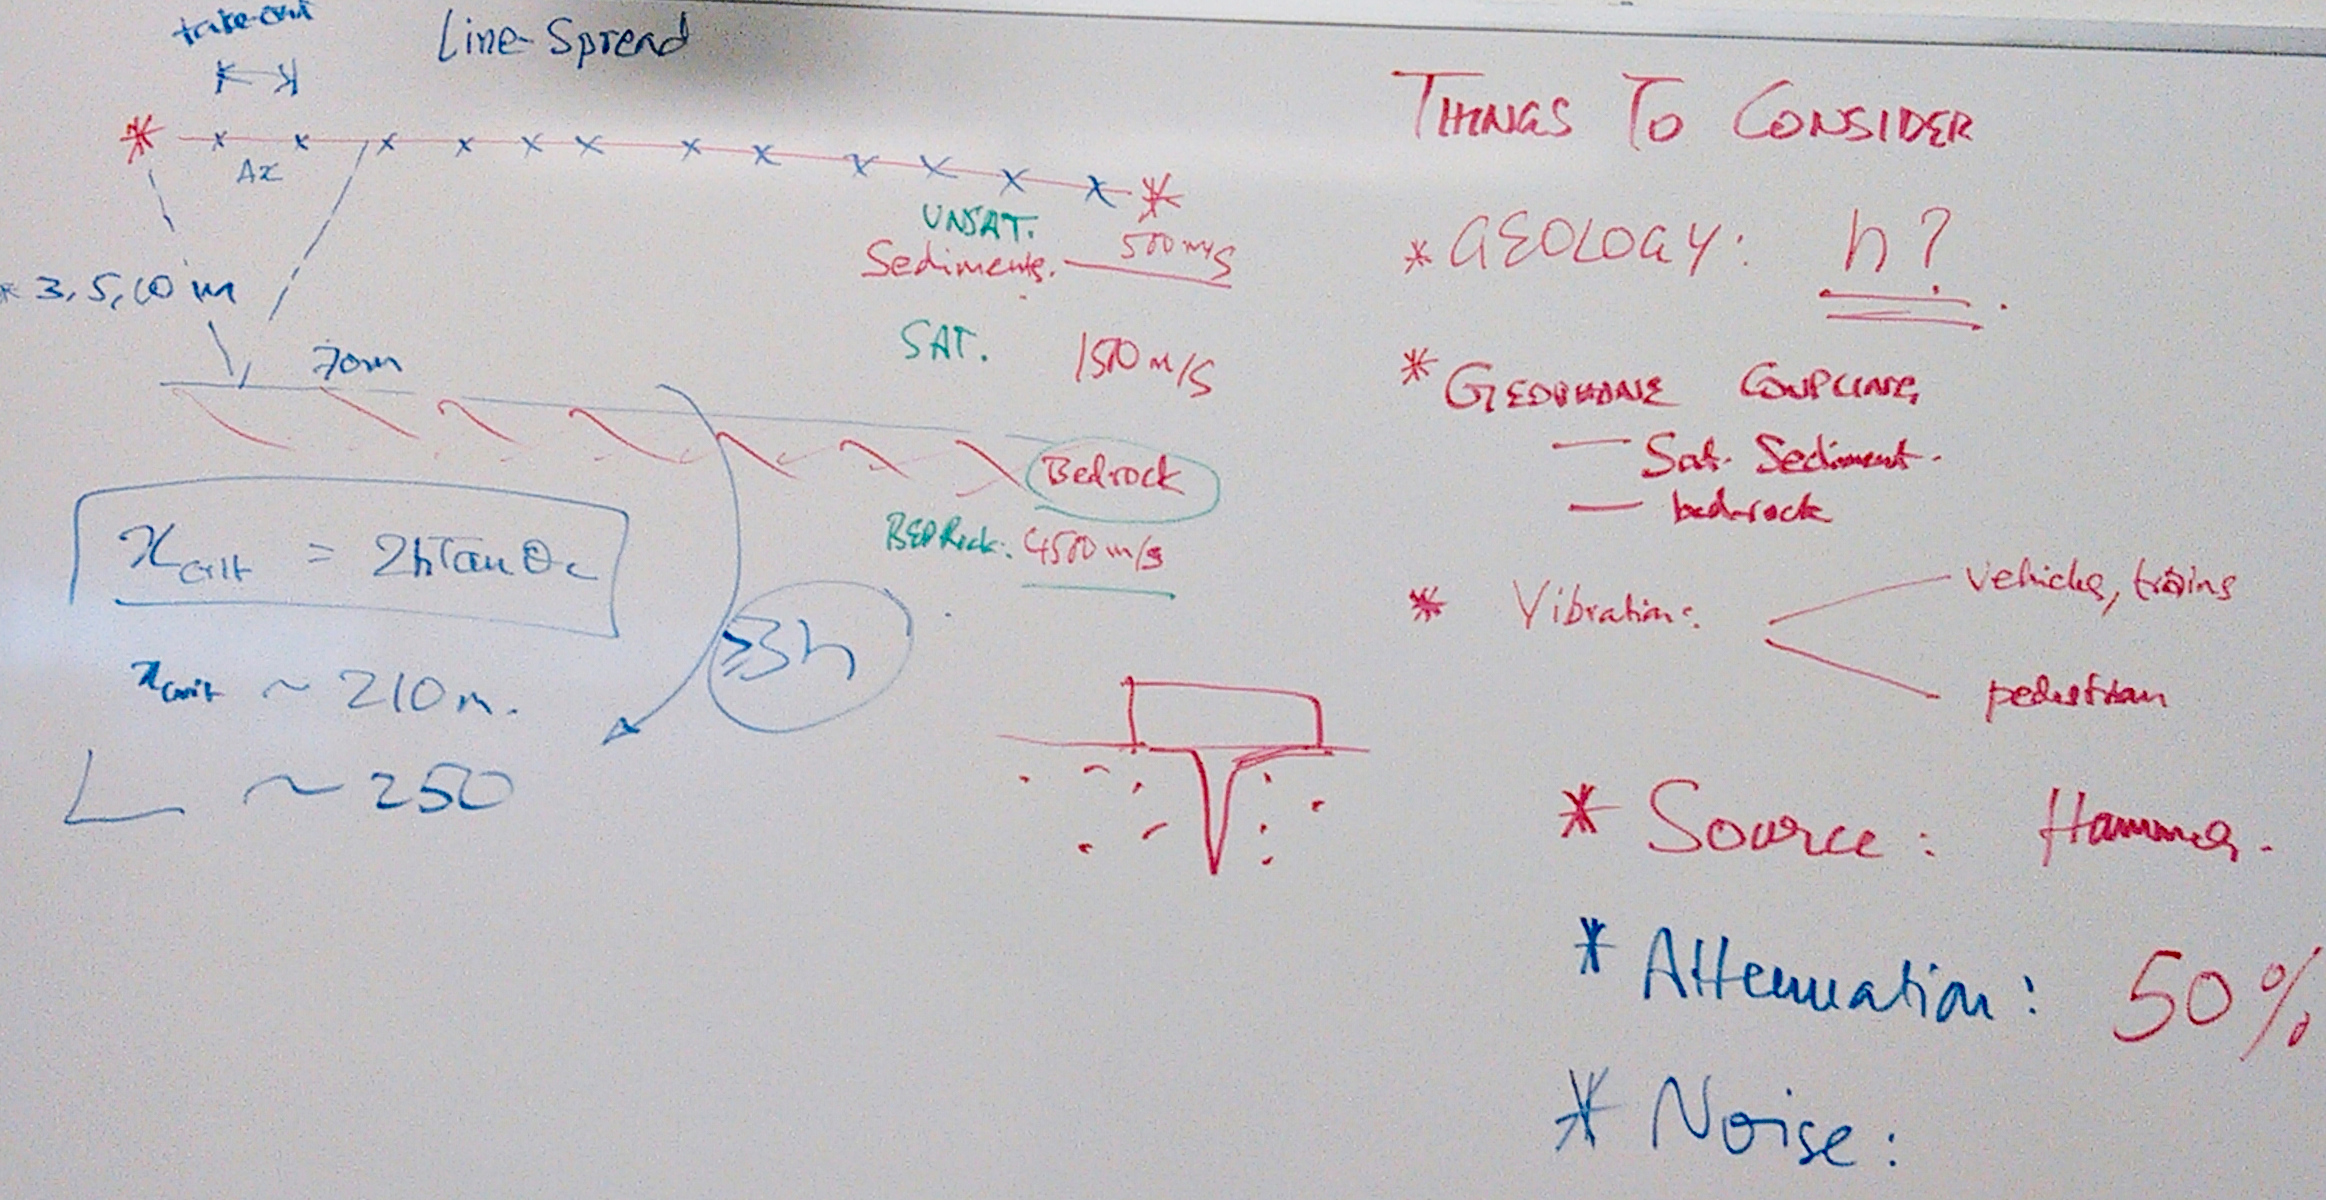 take-out
Line-Spread
Δx
* 3, 5, 10 m
70m
UNSAT.
Sediments. 500 m/s
SAT. 1500 m/s
Bedrock
BEDRock. 4500 m/s
xcrit = 2hTanθc
≥3h
xcrit ~ 210m.
L ~ 250
THINGS TO CONSIDER
* GEOLOGY: h?
* GEOPHONE COUPLING
— Sat. Sediment.
— bedrock
* Vibration:
vehicles, trains
pedestrian
* Source: Hammer.
* Attenuation: 50%
* Noise: